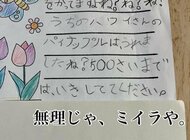 うちのハワイさんの
パイナップルはつれま
したね?500さいまで
は、いきしてください。
無理じゃ、ミイラや。